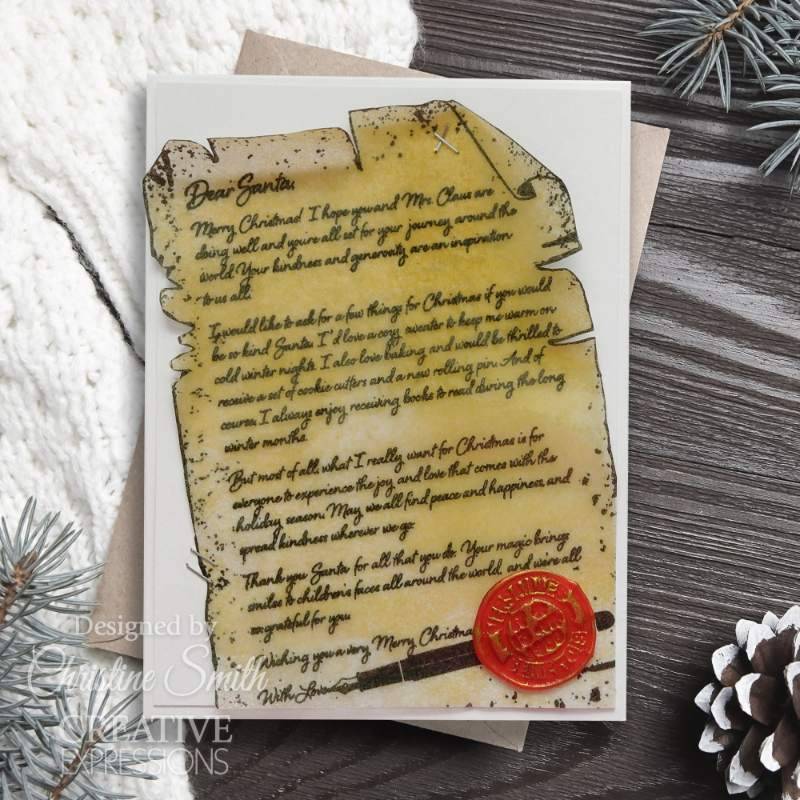 Dear Santa,
Merry Christmas! I hope you and Mrs. Claus are
doing well and you're all set for your journey around the
world. Your kindness and generosity are an inspiration
to us all.
I would like to ask for a few things for Christmas if you would
be so kind Santa. I'd love a cozy sweater to keep me warm on
cold winter nights. I also love baking and would be thrilled to
receive a set of cookie cutters and a new rolling pin. And of
course, I always enjoy receiving books to read during the long
winter months.
But most of all, what I really want for Christmas is for
everyone to experience the joy and love that comes with the
holiday season. May we all find peace and happiness, and
spread kindness wherever we go.
Thank you Santa for all that you do. Your magic brings
smiles to children's faces all around the world, and we're all
so grateful for you
Wishing you a very Merry Christmas
With Love
Designed by
Christine Smith
CREATIVE
EXPRESSIONS